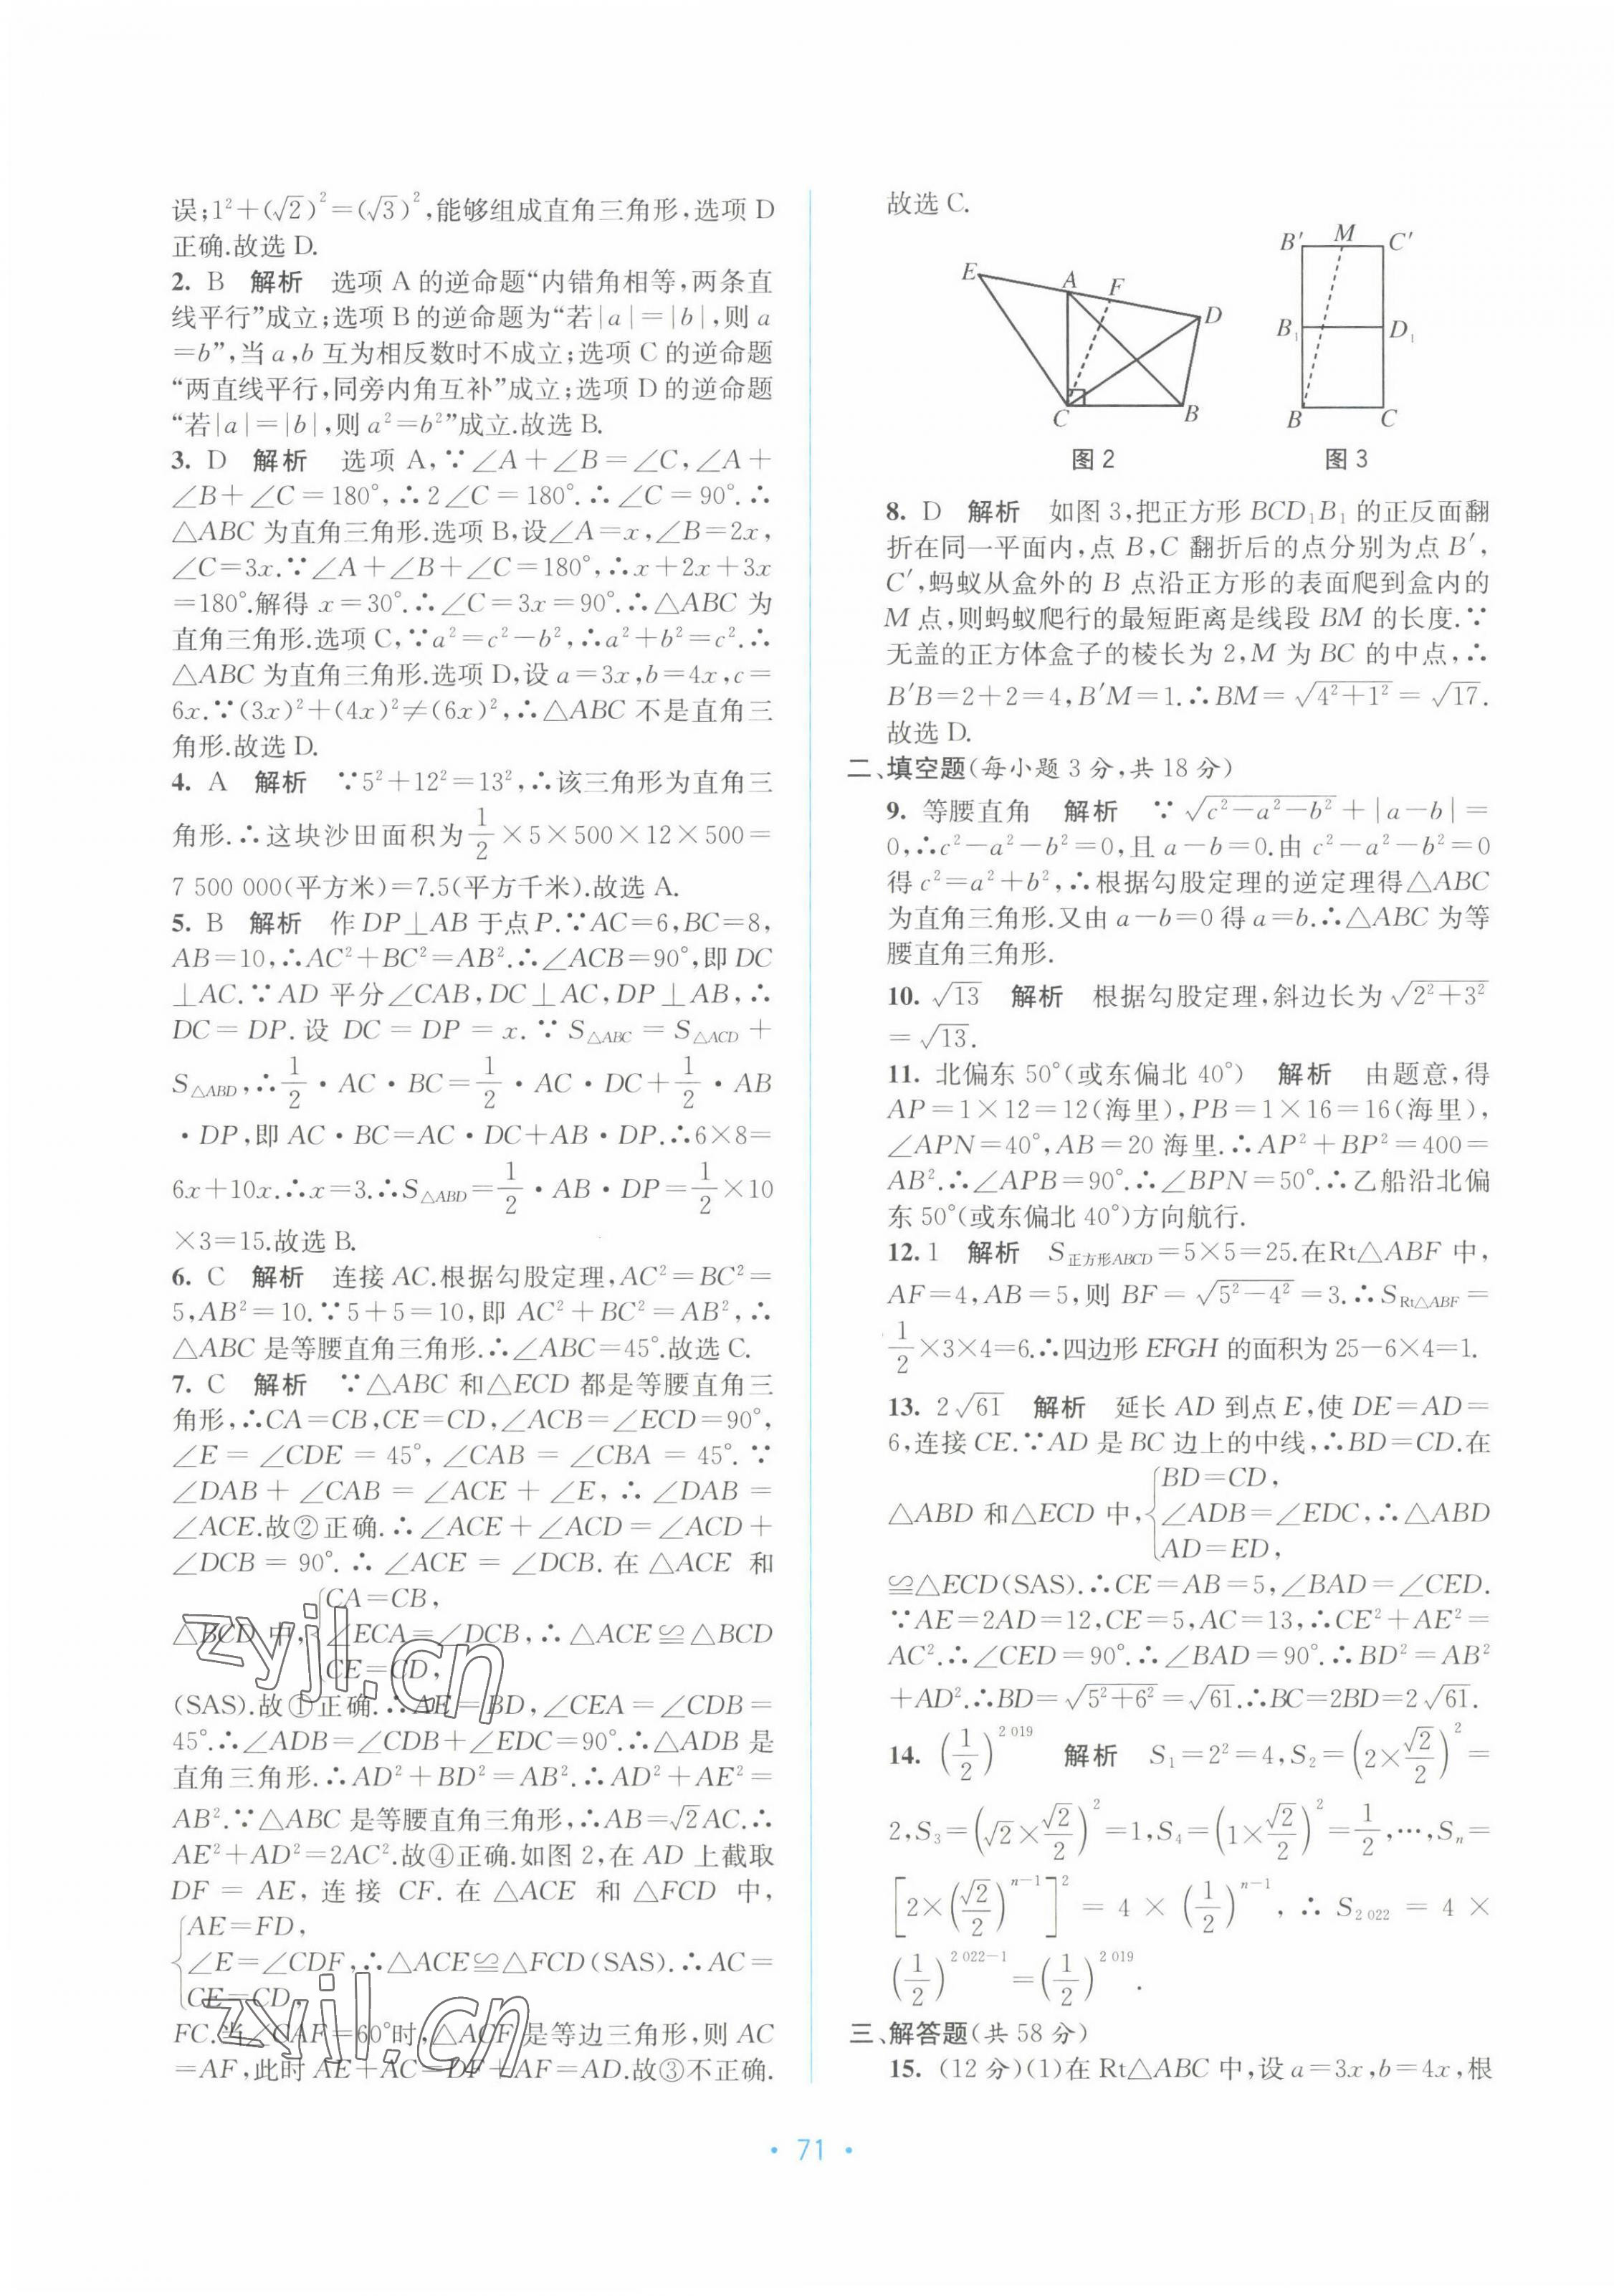 误;1²+(√2)²=(√3)²,能够组成直角三角形,选项 D
正确.故选 D.
2. B 解析 选项 A 的逆命题“内错角相等,两条直
线平行”成立;选项 B 的逆命题为“若|a|=|b|,则 a
=b”,当 a,b 互为相反数时不成立;选项 C 的逆命题
“两直线平行,同旁内角互补”成立;选项 D 的逆命题
“若|a|=|b|,则 a²=b²”成立.故选 B.
3. D 解析 选项 A,∵∠A+∠B=∠C,∠A+
∠B+∠C=180°,∴2∠C=180°.∴∠C=90°.∴
△ABC 为直角三角形.选项 B,设∠A=x,∠B=2x,
∠C=3x.∵∠A+∠B+∠C=180°,∴x+2x+3x
=180°.解得 x=30°.∴∠C=3x=90°.∴△ABC 为
直角三角形.选项 C,∵a²=c²-b²,∴a²+b²=c².∴
△ABC 为直角三角形.选项 D,设 a=3x,b=4x,c=
6x.∵(3x)²+(4x)²≠(6x)²,∴△ABC 不是直角三
角形.故选 D.
4. A 解析 ∵5²+12²=13²,∴该三角形为直角三
角形.∴这块沙田面积为1/2×5×500×12×500=
7 500 000(平方米)=7.5(平方千米).故选 A.
5. B 解析 作 DP⊥AB 于点 P.∵AC=6,BC=8,
AB=10,∴AC²+BC²=AB².∴∠ACB=90°,即 DC
⊥AC.∵AD 平分∠CAB,DC⊥AC,DP⊥AB,∴
DC=DP.设 DC=DP=x.∵S△ABC=S△ACD+
S△ABD,∴1/2·AC·BC=1/2·AC·DC+1/2·AB
·DP,即 AC·BC=AC·DC+AB·DP.∴6×8=
6x+10x.∴x=3.∴S△ABD=1/2·AB·DP=1/2×10
×3=15.故选 B.
6. C 解析 连接 AC.根据勾股定理,AC²=BC²=
5,AB²=10.∵5+5=10,即 AC²+BC²=AB²,∴
△ABC 是等腰直角三角形.∴∠ABC=45°.故选 C.
7. C 解析 ∵△ABC 和△ECD 都是等腰直角三
角形,∴CA=CB,CE=CD,∠ACB=∠ECD=90°,
∠E=∠CDE=45°,∠CAB=∠CBA=45°.∵
∠DAB+∠CAB=∠ACE+∠E,∴∠DAB=
∠ACE.故②正确.∴∠ACE+∠ACD=∠ACD+
∠DCB=90°.∴∠ACE=∠DCB.在△ACE 和
CA=CB,
△BCD 中,{∠ECA=∠DCB,∴△ACE≌△BCD
CE=CD,
(SAS).故①正确.∴AE=BD,∠CEA=∠CDB=
45°.∴∠ADB=∠CDB+∠EDC=90°.∴△ADB 是
直角三角形.∴AD²+BD²=AB².∴AD²+AE²=
AB².∵△ABC 是等腰直角三角形,∴AB=√2AC.∴
AE²+AD²=2AC².故④正确.如图 2,在 AD 上截取
DF=AE,连接 CF.在△ACE 和△FCD 中,
AE=FD,
{∠E=∠CDF,∴△ACE≌△FCD(SAS).∴AC=
CE=CD,
FC.当∠CAF=60°时,△ACF 是等边三角形,则 AC
=AF,此时 AE+AC=DF+AF=AD.故③不正确.
zyjl.cn
zyjl.cn
故选 C.
E A F D C B
图 2
B′ M C′ B₁ D₁ B C
图 3
8. D 解析 如图 3,把正方形 BCD₁B₁ 的正反面翻
折在同一平面内,点 B,C 翻折后的点分别为点 B′,
C′,蚂蚁从盒外的 B 点沿正方形的表面爬到盒内的
M 点,则蚂蚁爬行的最短距离是线段 BM 的长度.∵
无盖的正方体盒子的棱长为 2,M 为 BC 的中点,∴
B′B=2+2=4,B′M=1.∴BM=√(4²+1²)=√17.
故选 D.
二、填空题(每小题 3 分,共 18 分)
9. 等腰直角 解析 ∵√(c²-a²-b²)+|a-b|=
0,∴c²-a²-b²=0,且 a-b=0.由 c²-a²-b²=0
得 c²=a²+b²,∴根据勾股定理的逆定理得△ABC
为直角三角形.又由 a-b=0 得 a=b.∴△ABC 为等
腰直角三角形.
10. √13 解析 根据勾股定理,斜边长为√(2²+3²)
=√13.
11. 北偏东 50°(或东偏北 40°) 解析 由题意,得
AP=1×12=12(海里),PB=1×16=16(海里),
∠APN=40°,AB=20 海里.∴AP²+BP²=400=
AB².∴∠APB=90°.∴∠BPN=50°.∴乙船沿北偏
东 50°(或东偏北 40°)方向航行.
12. 1 解析 S正方形ABCD=5×5=25.在Rt△ABF 中,
AF=4,AB=5,则 BF=√(5²-4²)=3.∴SRt△ABF=
1/2×3×4=6.∴四边形 EFGH 的面积为 25-6×4=1.
13. 2√61 解析 延长 AD 到点 E,使 DE=AD=
6,连接 CE.∵AD 是 BC 边上的中线,∴BD=CD.在
BD=CD,
△ABD 和△ECD 中,{∠ADB=∠EDC,∴△ABD
AD=ED,
≌△ECD(SAS).∴CE=AB=5,∠BAD=∠CED.
∵AE=2AD=12,CE=5,AC=13,∴CE²+AE²=
AC².∴∠CED=90°.∴∠BAD=90°.∴BD²=AB²
+AD².∴BD=√(5²+6²)=√61.∴BC=2BD=2√61.
14. (1/2)^2 019 解析 S₁=2²=4,S₂=(2×√2/2)²=
2,S₃=(√2×√2/2)²=1,S₄=(1×√2/2)²=1/2,…,Sₙ=
[2×(√2/2)^(n-1)]²=4×(1/2)^(n-1),∴S2 022=4×
(1/2)^(2 022-1)=(1/2)^2 019.
三、解答题(共 58 分)
15. (12 分)(1)在 Rt△ABC 中,设 a=3x,b=4x,根
· 71 ·